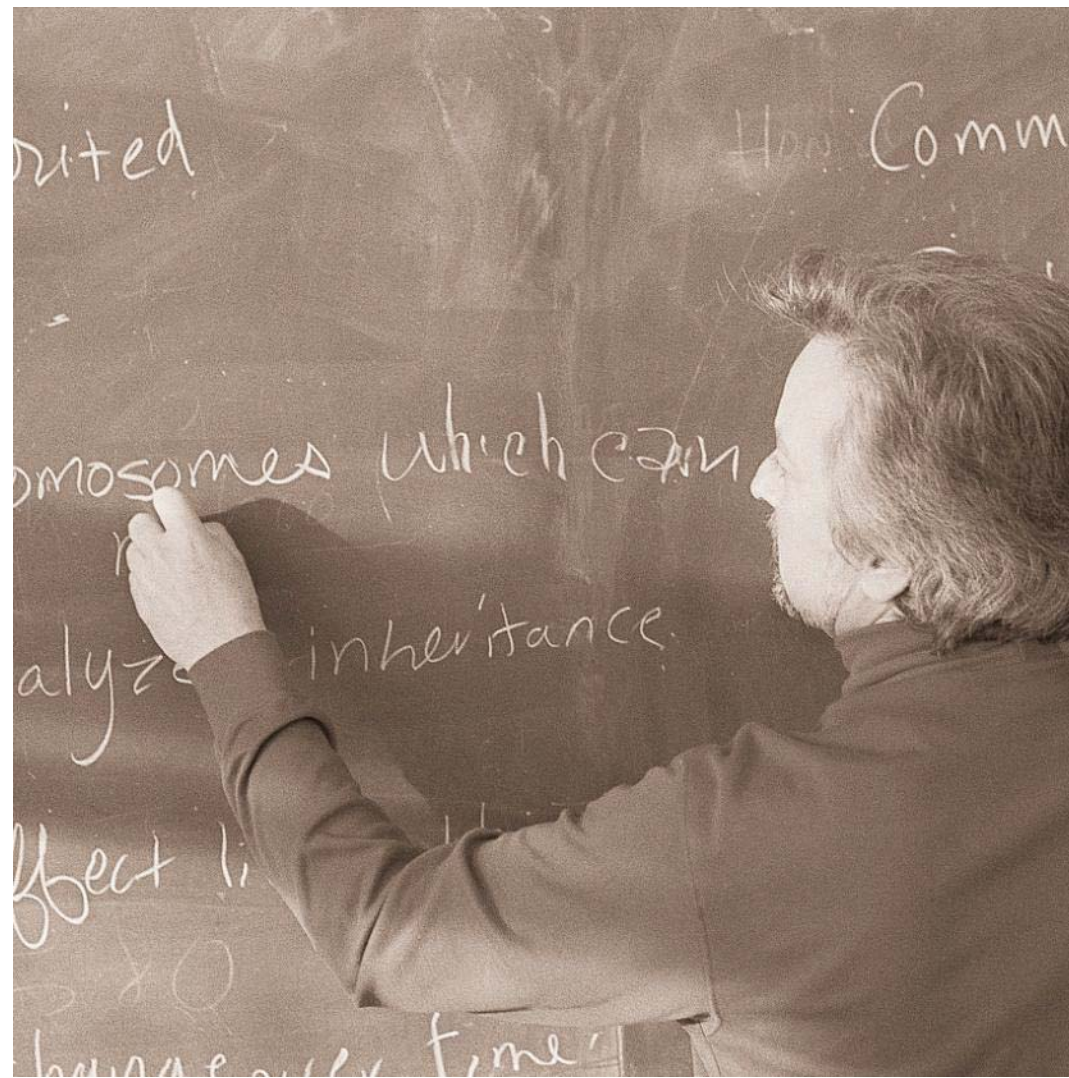 rited Comm
omosomes which can
alyze inheritance.
ffect li
hange over time.